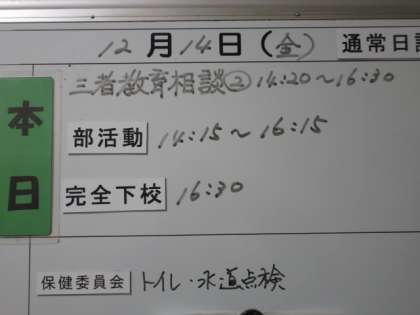 12月14日(金) 通常日
本日
三者教育相談② 14:20〜16:30
部活動 14:15〜16:15
完全下校 16:30
保健委員会 トイレ・水道点検